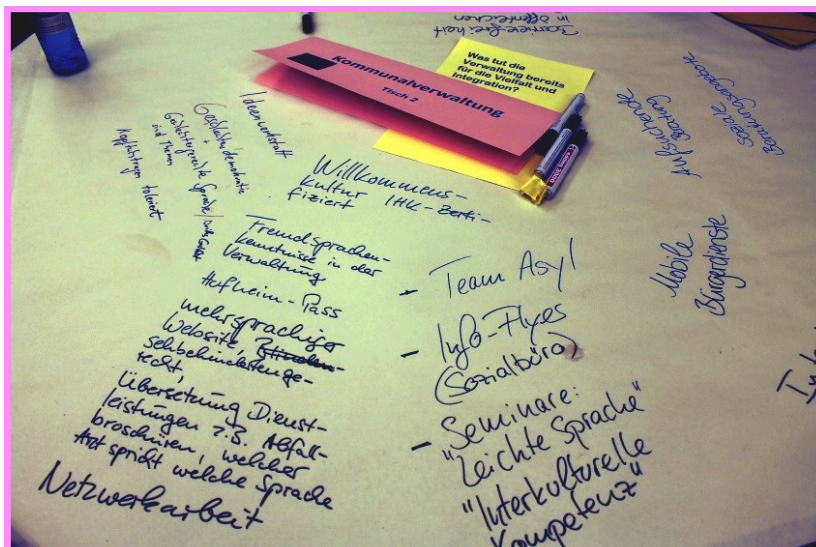 Barrierefreiheit
in öffentlichen
Was tut die
Verwaltung bereits
für die Vielfalt und
Integration?
Kommunalverwaltung
Tisch 2
Soziale
Beratungsangebote
Aufsuchende
Ideenwerkstatt
Geschlechterdemokratie
+
Geschlechtergerechte Sprache
und Themen
Kopftuchtragen toleriert
Willkommens-
kultur IHK-Zerti-
fiziert
Fremdsprachen-
kenntnisse in der
Verwaltung
Hofheim-Pass
mehrsprachige
Website,
sehbehindertenge-
recht,
Übersetzung Dienst-
leistungen z.B. Abfall-
broschüren, welcher
Arzt spricht welche Sprache
Netzwerkarbeit
- Team Asyl
- Info-Flyer
(Sozialbüro)
- Seminare:
"Leichte Sprache"
"Interkulturelle
Kompetenz"
Mobile
Bürgerdienste